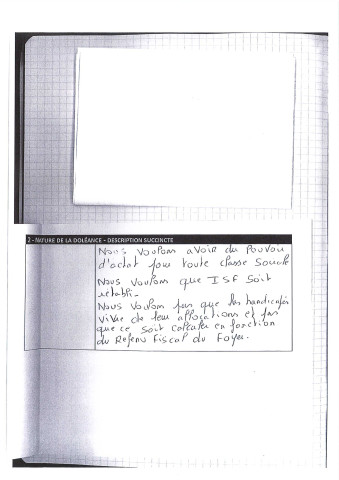 2 - NATURE DE LA DOLÉANCE - DESCRIPTION SUCCINCTE
Nous voulons avoir du pouvou
d'achat pour toute classe sociale
Nous voulons que ISF soit
rétabli.
Nous voulons pas que les handicapés
vivre de leur allocations et pas
que ce soit calculer en fonction
du Revenu Fiscal du Foyer.